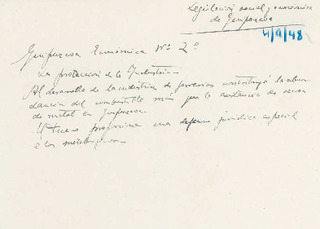 Legislación social y económica
de Guipúzcoa
4/9/48
Guipúzcoa Económica Nº 2º
La protección de la Industria
Al desarrollo de la industria de contribuyó la abun
dancia del combustible más que la existencia de
de metal en Guipúzcoa.
El Fuero una defensa jurídica especial
a los